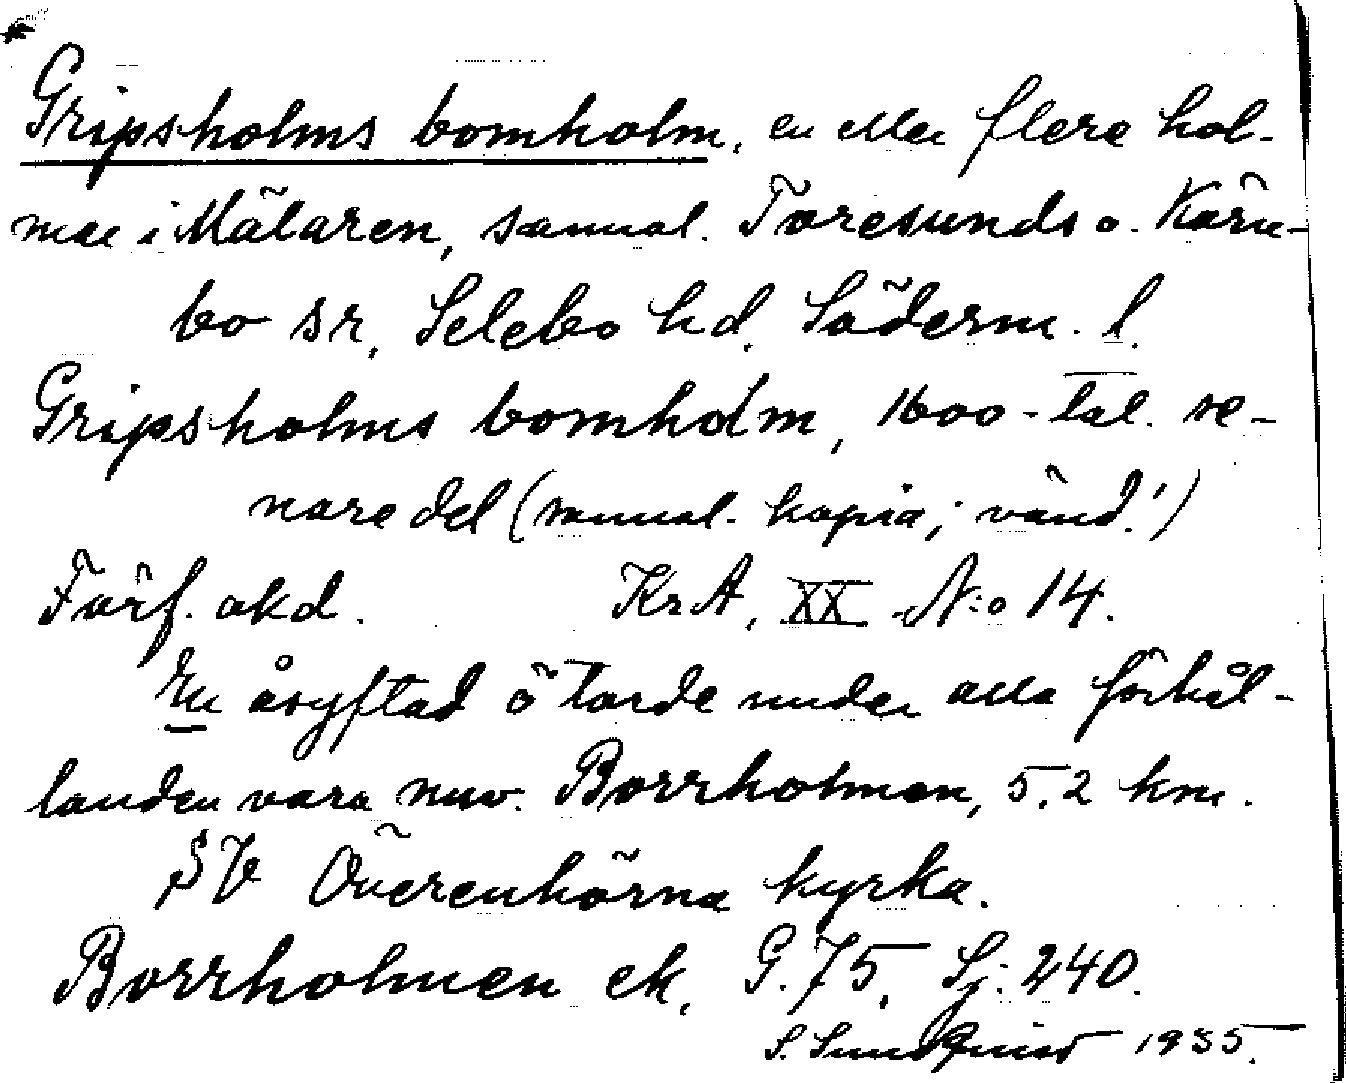 Gripsholms bomholm, en eller flere hol-
mar i Mälaren, samnal. Toresunds o. Kärn-
bo sr, Selebo hd. Söderm. l.
Gripsholms bomholm, 1600-tal. se-
nare del (samnal. kopia; vänd!)
Förf. okd. KrA, XX N:o 14.
En åsyftad ö torde under alla förhål-
landen vara nuv. Borrholmen, 5,2 km.
SV Överenhörna kyrka.
Borrholmen ek. G. 75, Lj. 240.
S. Sundquist 1935.